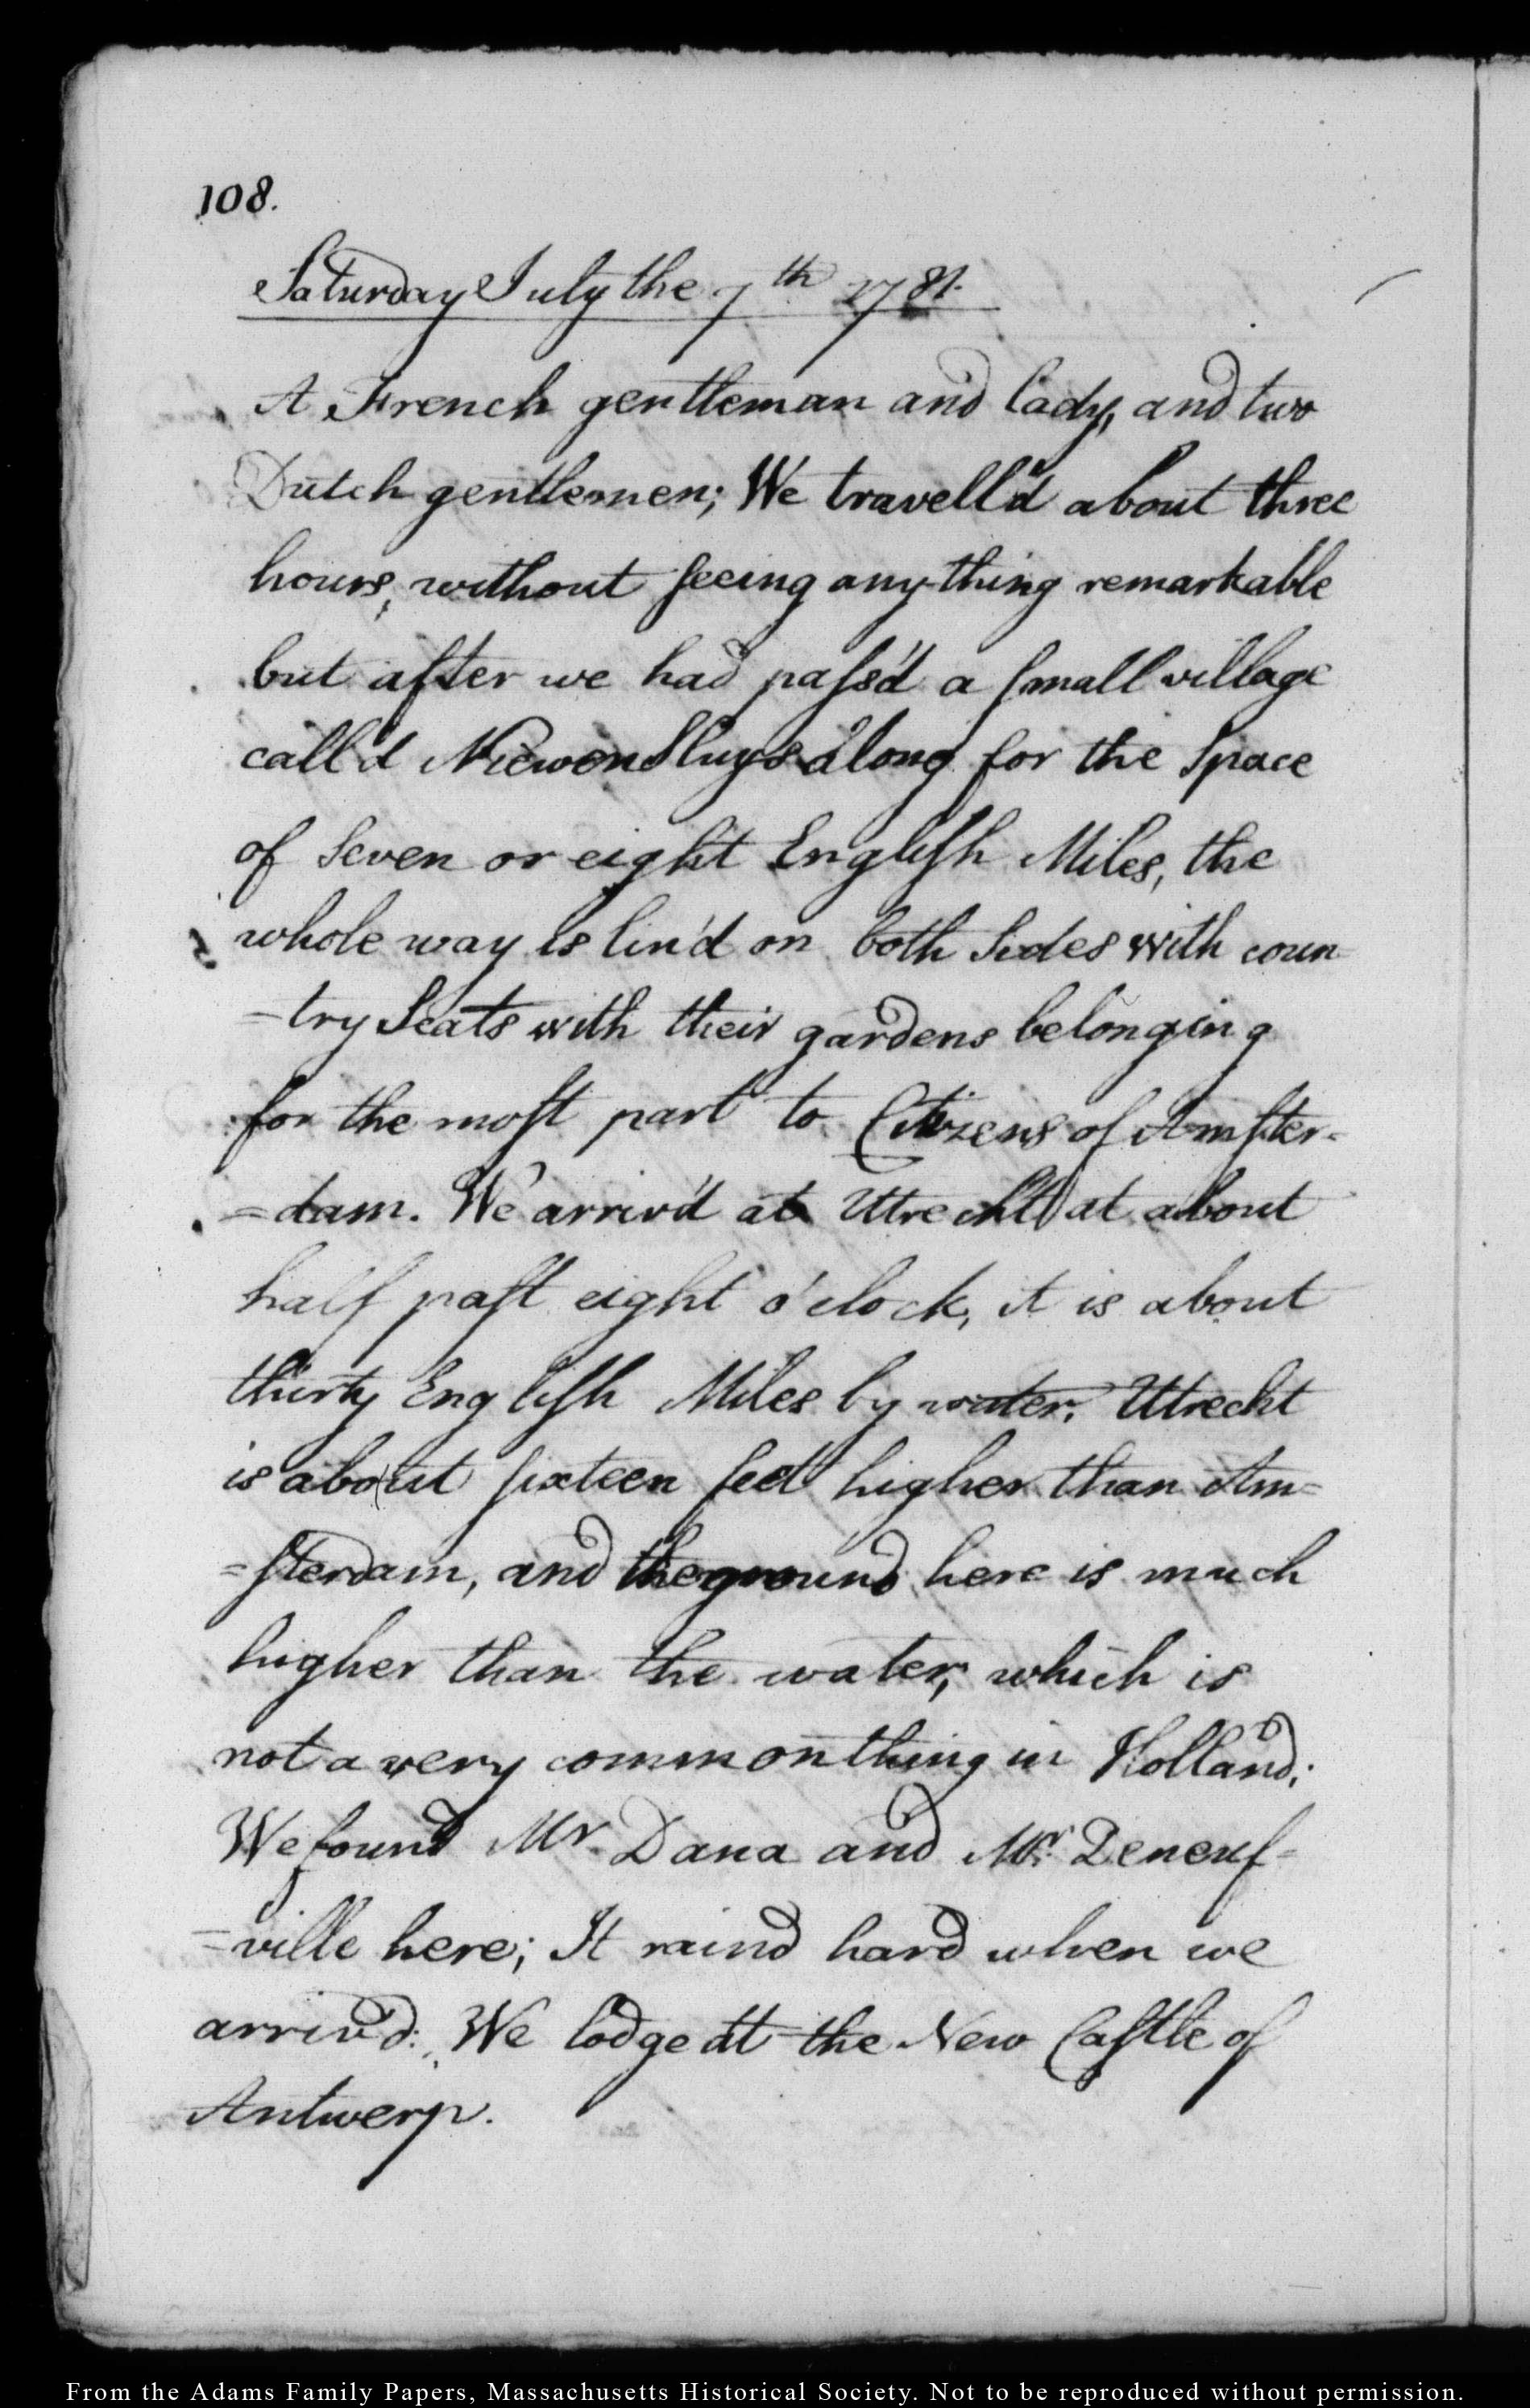 108.
Saturday July the 7th 1781.
A French gentleman and lady, and two
Dutch gentlemen; We travell'd about three
hours, without seeing any thing remarkable
but after we had pass'd a small village
call'd Niewenslugs along for the space
of seven or eight English Miles, the
whole way is lin'd on both sides with coun
=try seats with their gardens belonging
for the most part to Citizens of Amster-
=dam. We arriv'd at Utrecht at about
half past eight o'clock, it is about
thirty English Miles by water. Utrecht
is about sixteen feet higher than Am=
=sterdam, and the ground here is much
higher than the water, which is
not a very common thing in Holland;
We found Mr. Dana and Mr. Deneuf=
=ville here; It raind hard when we
arriv'd: We lodge at the New Castle of
Antwerp.
From the Adams Family Papers, Massachusetts Historical Society. Not to be reproduced without permission.